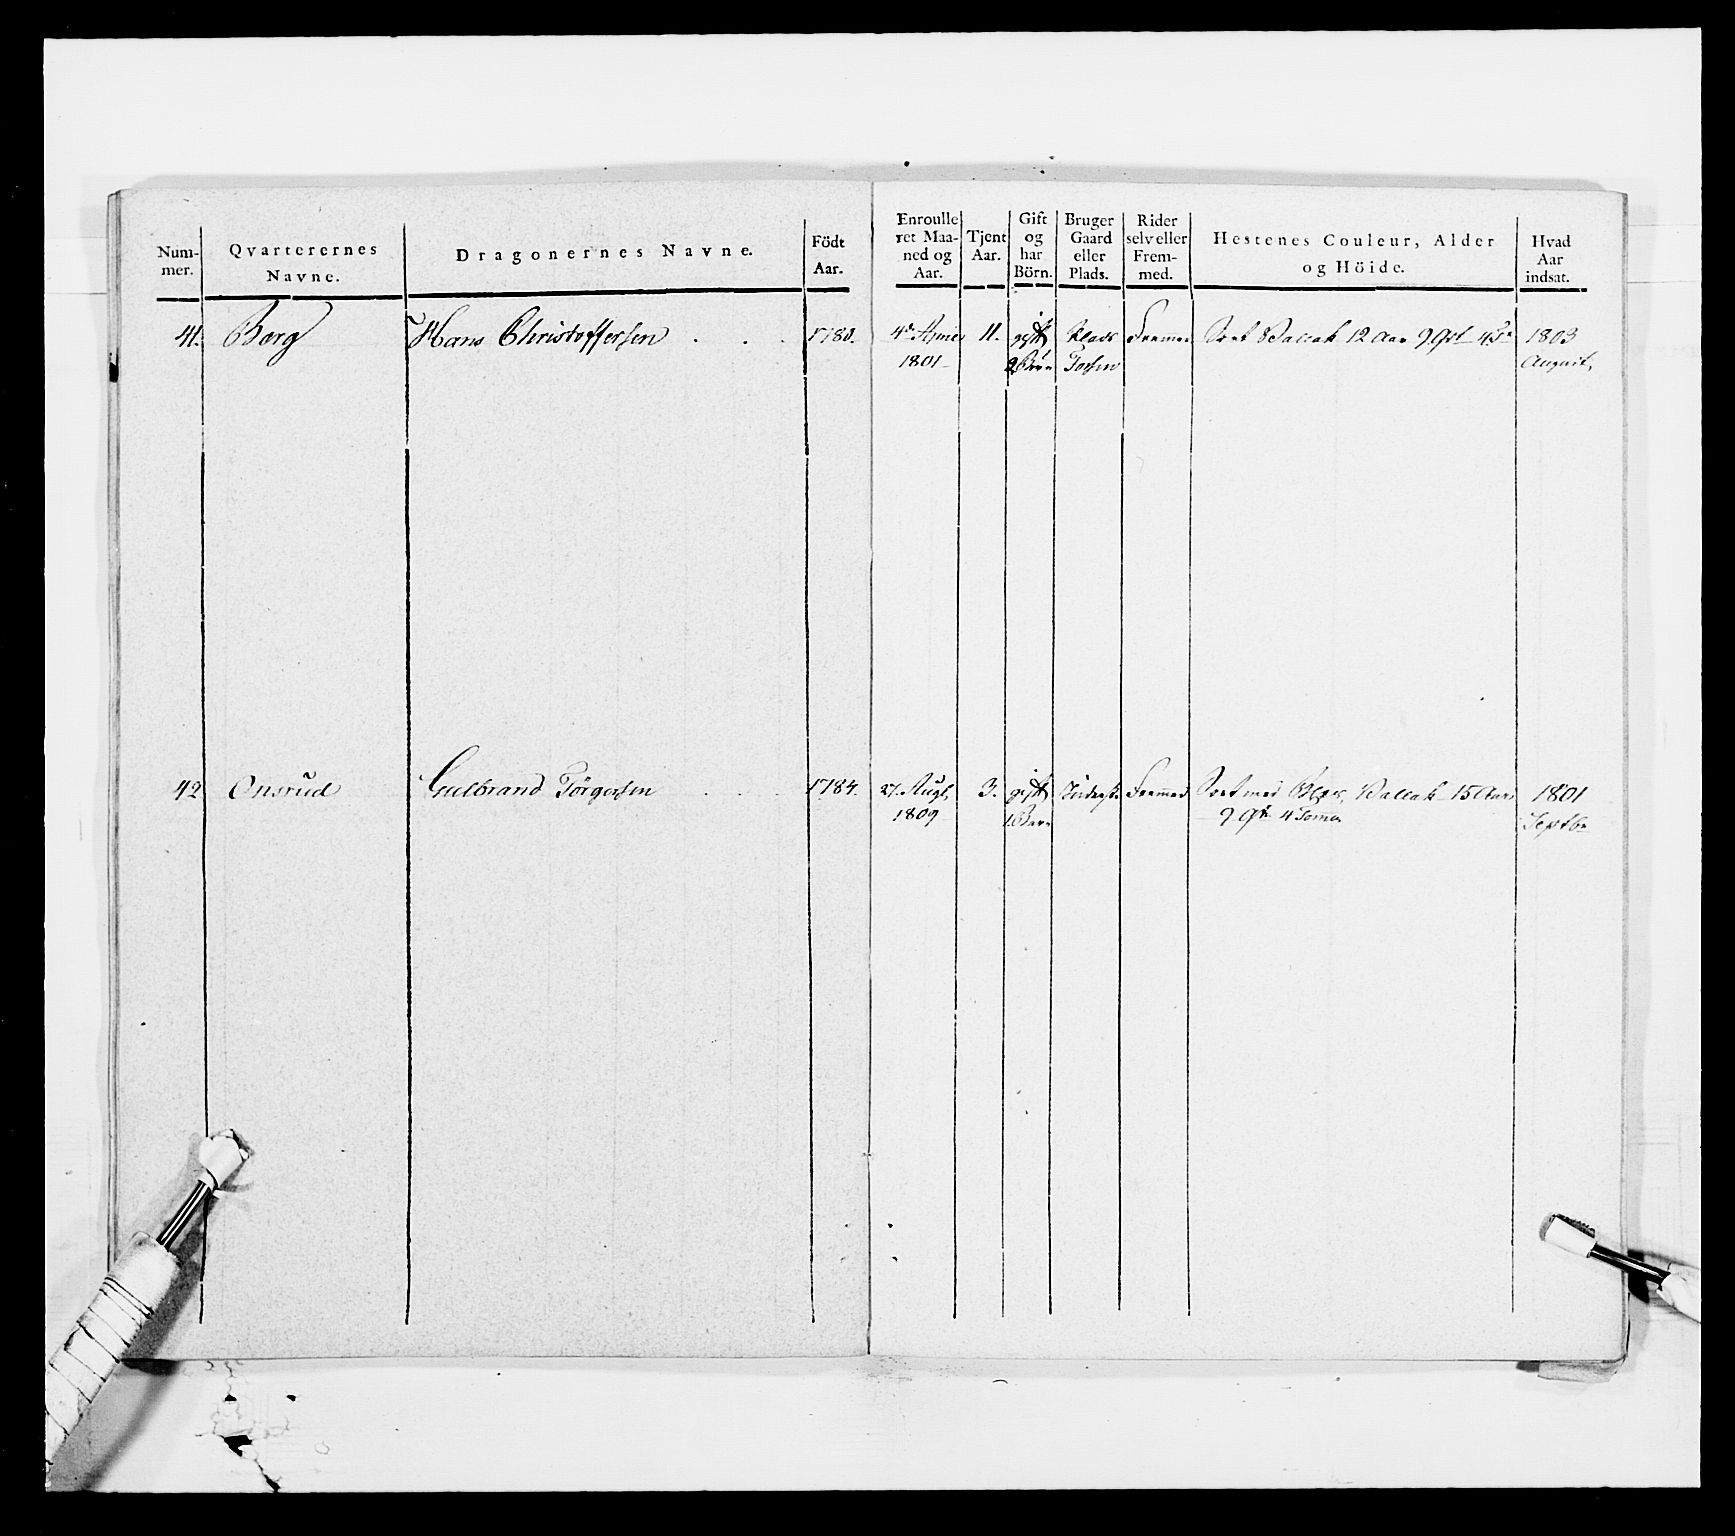 Num-
mer.
Qvarterernes
Navne.
Dragonernes Navne.
Födt
Aar.
Enroulle
ret Maa-
ned og
Aar.
Tjent
Aar.
Gift
og
har
Börn.
Bruger
Gaard
eller
Plads.
Rider
selv eller
Frem-
med.
Hestenes Couleur, Alder
og Höide.
Hvad
Aar
indsat.
41. Berg Hans Christoffersen . . . 1780. 11. gift Plads Fremmed Sort Vallak 12 Aar 9 Qrt 1803
1801 August,
42 Onsrud Gulbrand Törgersen . . . . 1784. 27. Augt, 3. gift Inderst. Fremmed Sort med Vallak 15 Aar 1801
1809 1 Barn 9 Qr 4 Tomer Septbr